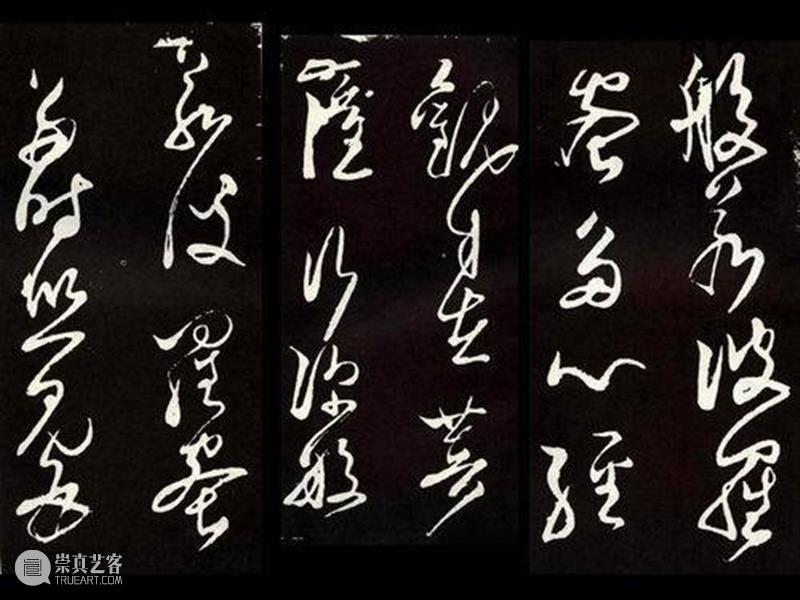 般若波羅
蜜多心經
觀自在菩
薩行深般
若波羅蜜
多時照見五
崇真艺客
TRUEART.COM